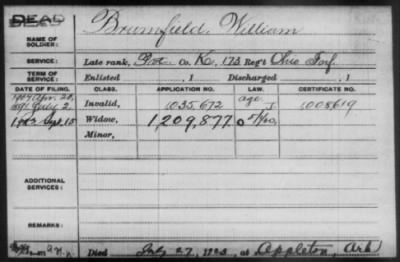 DEAD
NAME OF SOLDIER: Brumfield, William
SERVICE: Late rank, Pvt. Co. K, 173 Reg't Ohio Inf.
TERM OF SERVICE: Enlisted , 1 Discharged , 1
DATE OF FILING. CLASS. APPLICATION NO. LAW. CERTIFICATE NO.
1891 July 2. Invalid, 1035,672 1008619
Sept. 15 Widow, 1,209,877
Minor,
ADDITIONAL SERVICES:
REMARKS:
Died July 27, at Appleton, Ark